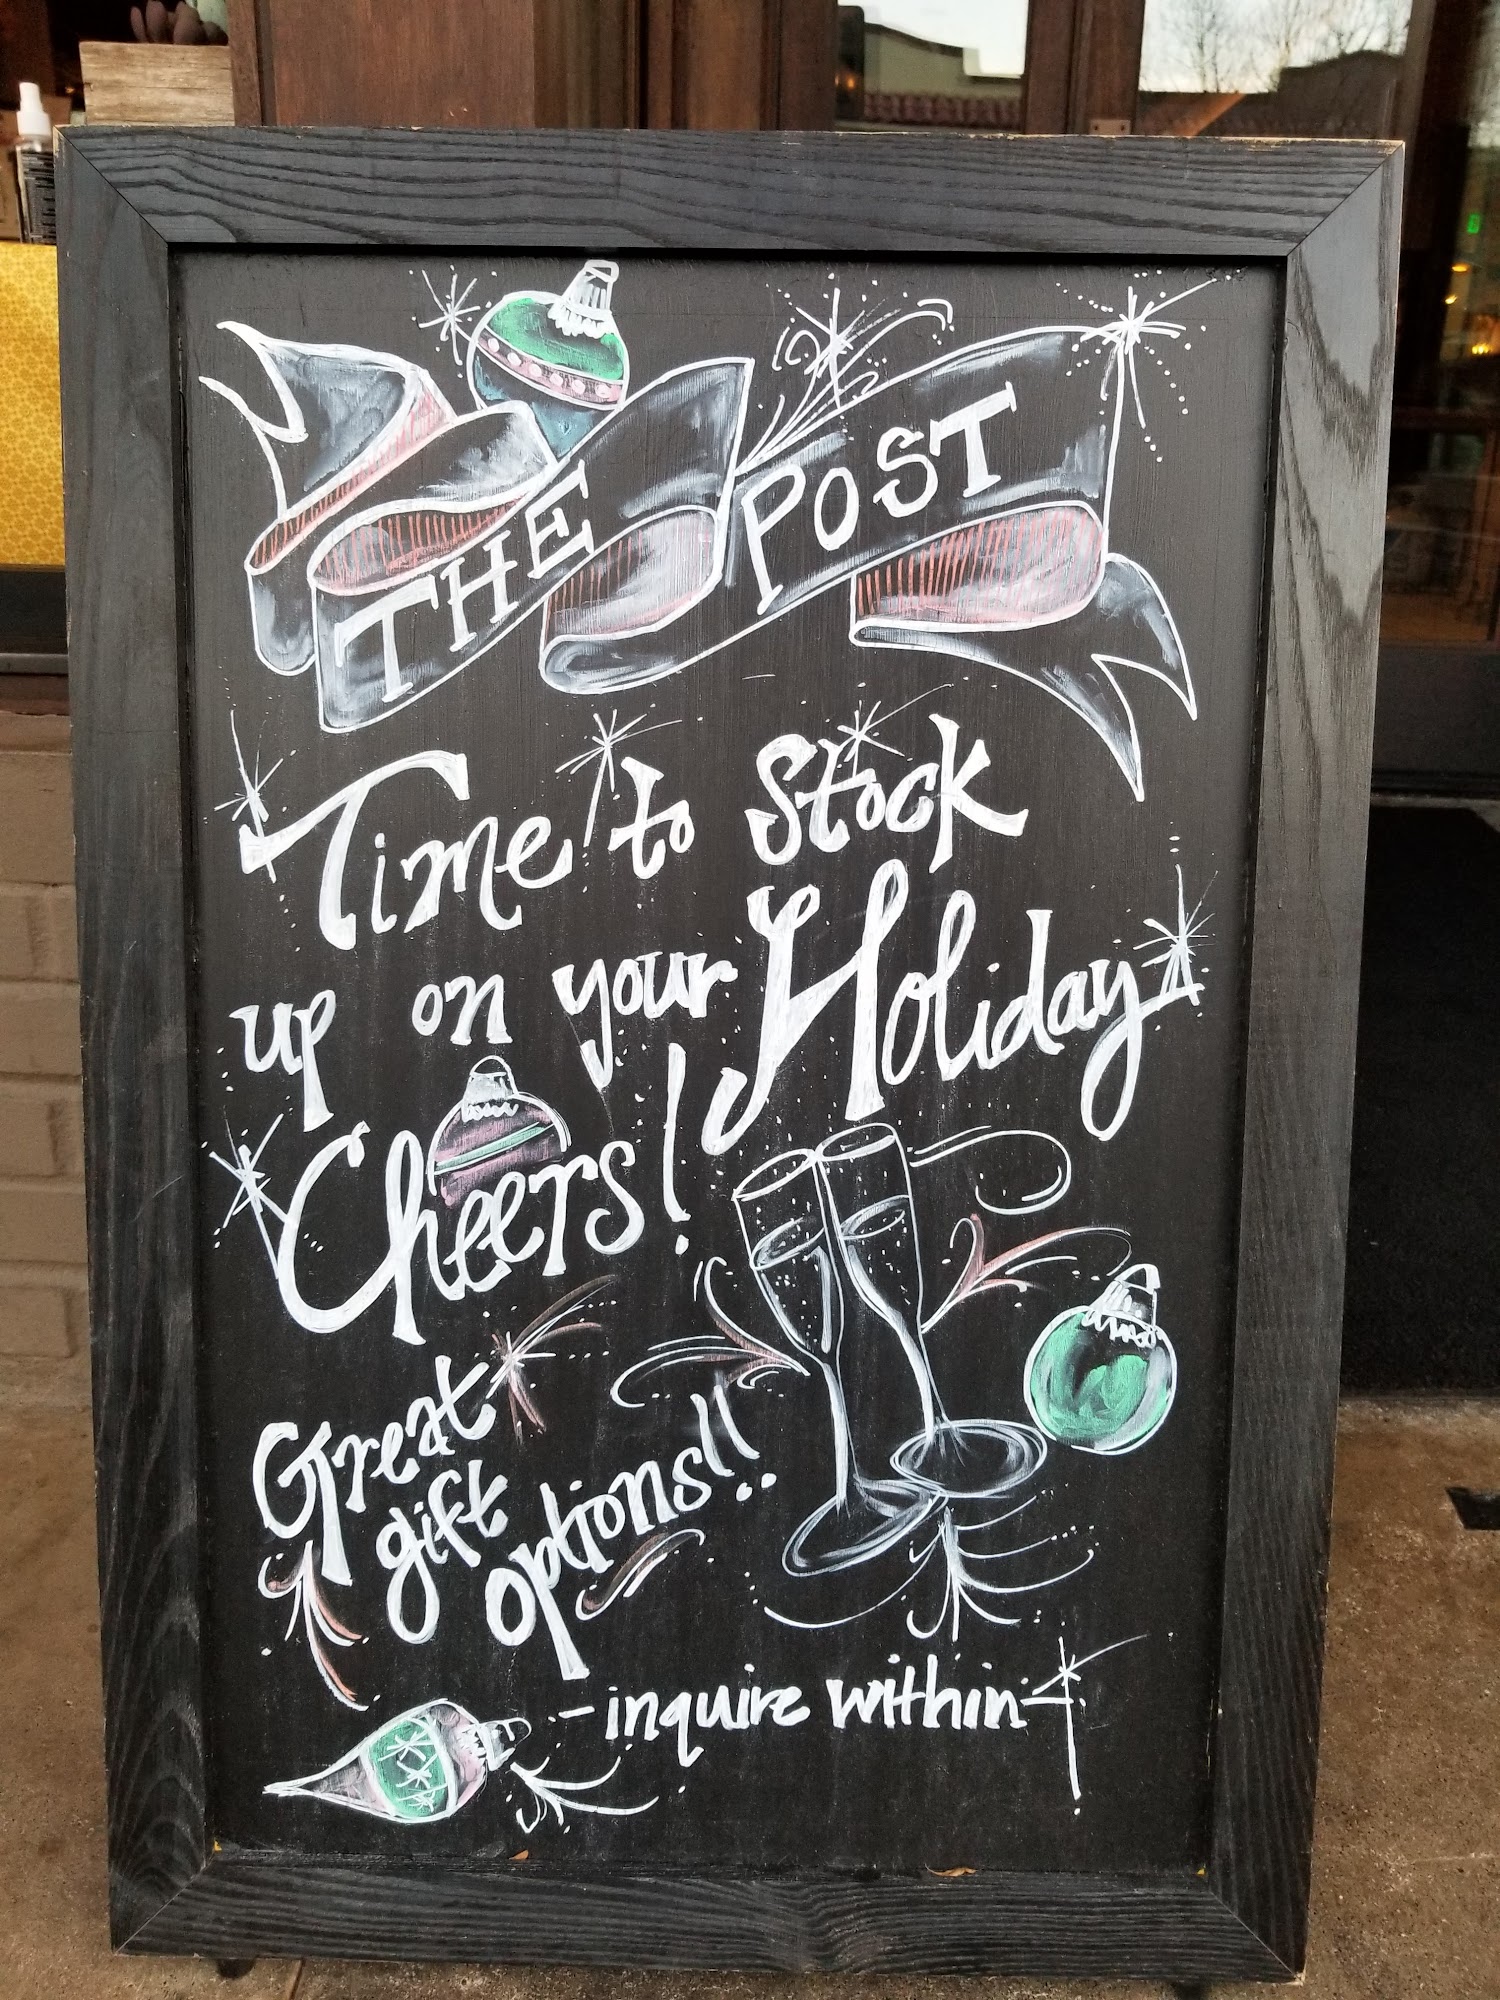 THE POST
Time to Stock
up on your Holiday
Cheers!
Great
gift
options!!
-inquire within-